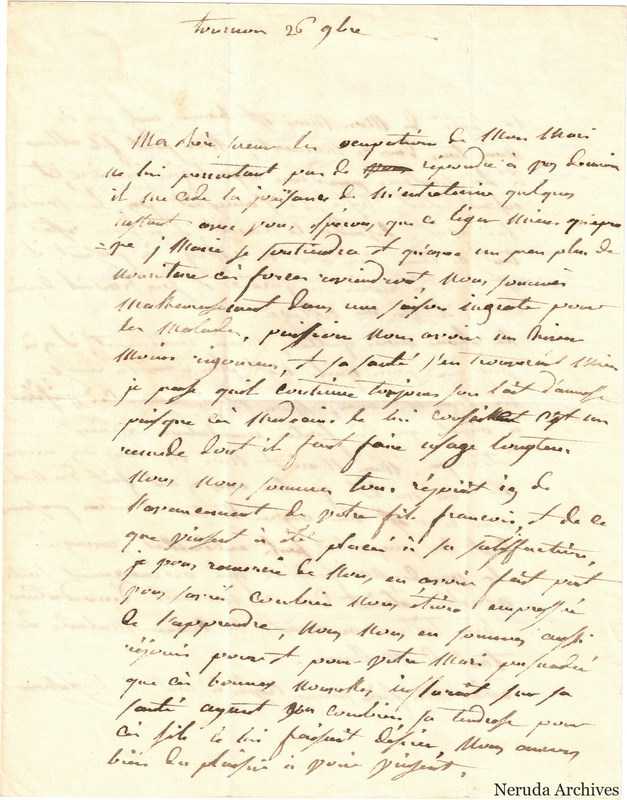 tournon 26 9bre
Ma chère soeur les ocupation de Mon Mari
ne lui permetant pas de répondre à vos
il me cede la de M'entretenir quelques
instant avec vous, que ce léger Mieux
que Marie se soutiendra + un peu plus de
nouriture ces forces reviendront, Nous sommes
Malheureusement dans une saison ingrate pour
les Malades, Nous avoir un hiver
Moins rigoureux, + sa santé s'en trouverait Mieux
je pense qu'il continue toujours son lait d'anesse
puisque ces Medecins le lui c'est un
remede dont il faut faire usage longtems
Nous Nous sommes tous réjouit ici de
l'avancement de votre fils francois, + de ce
que vincent à été placé à sa satisfaction,
je vous remercie de Nous en avoir fait part
vous savés combien Nous étions empressés
de l'apprendre, Nous Nous en sommes aussi
réjouis pour votre Mari persuadé
que ces bonnes Nouvelles sur sa
santé ayant combien sa tendresse pour
ces fils le lui faisait désirer, Nous aurons
bien du plaisir à voir vincent.
Neruda Archives